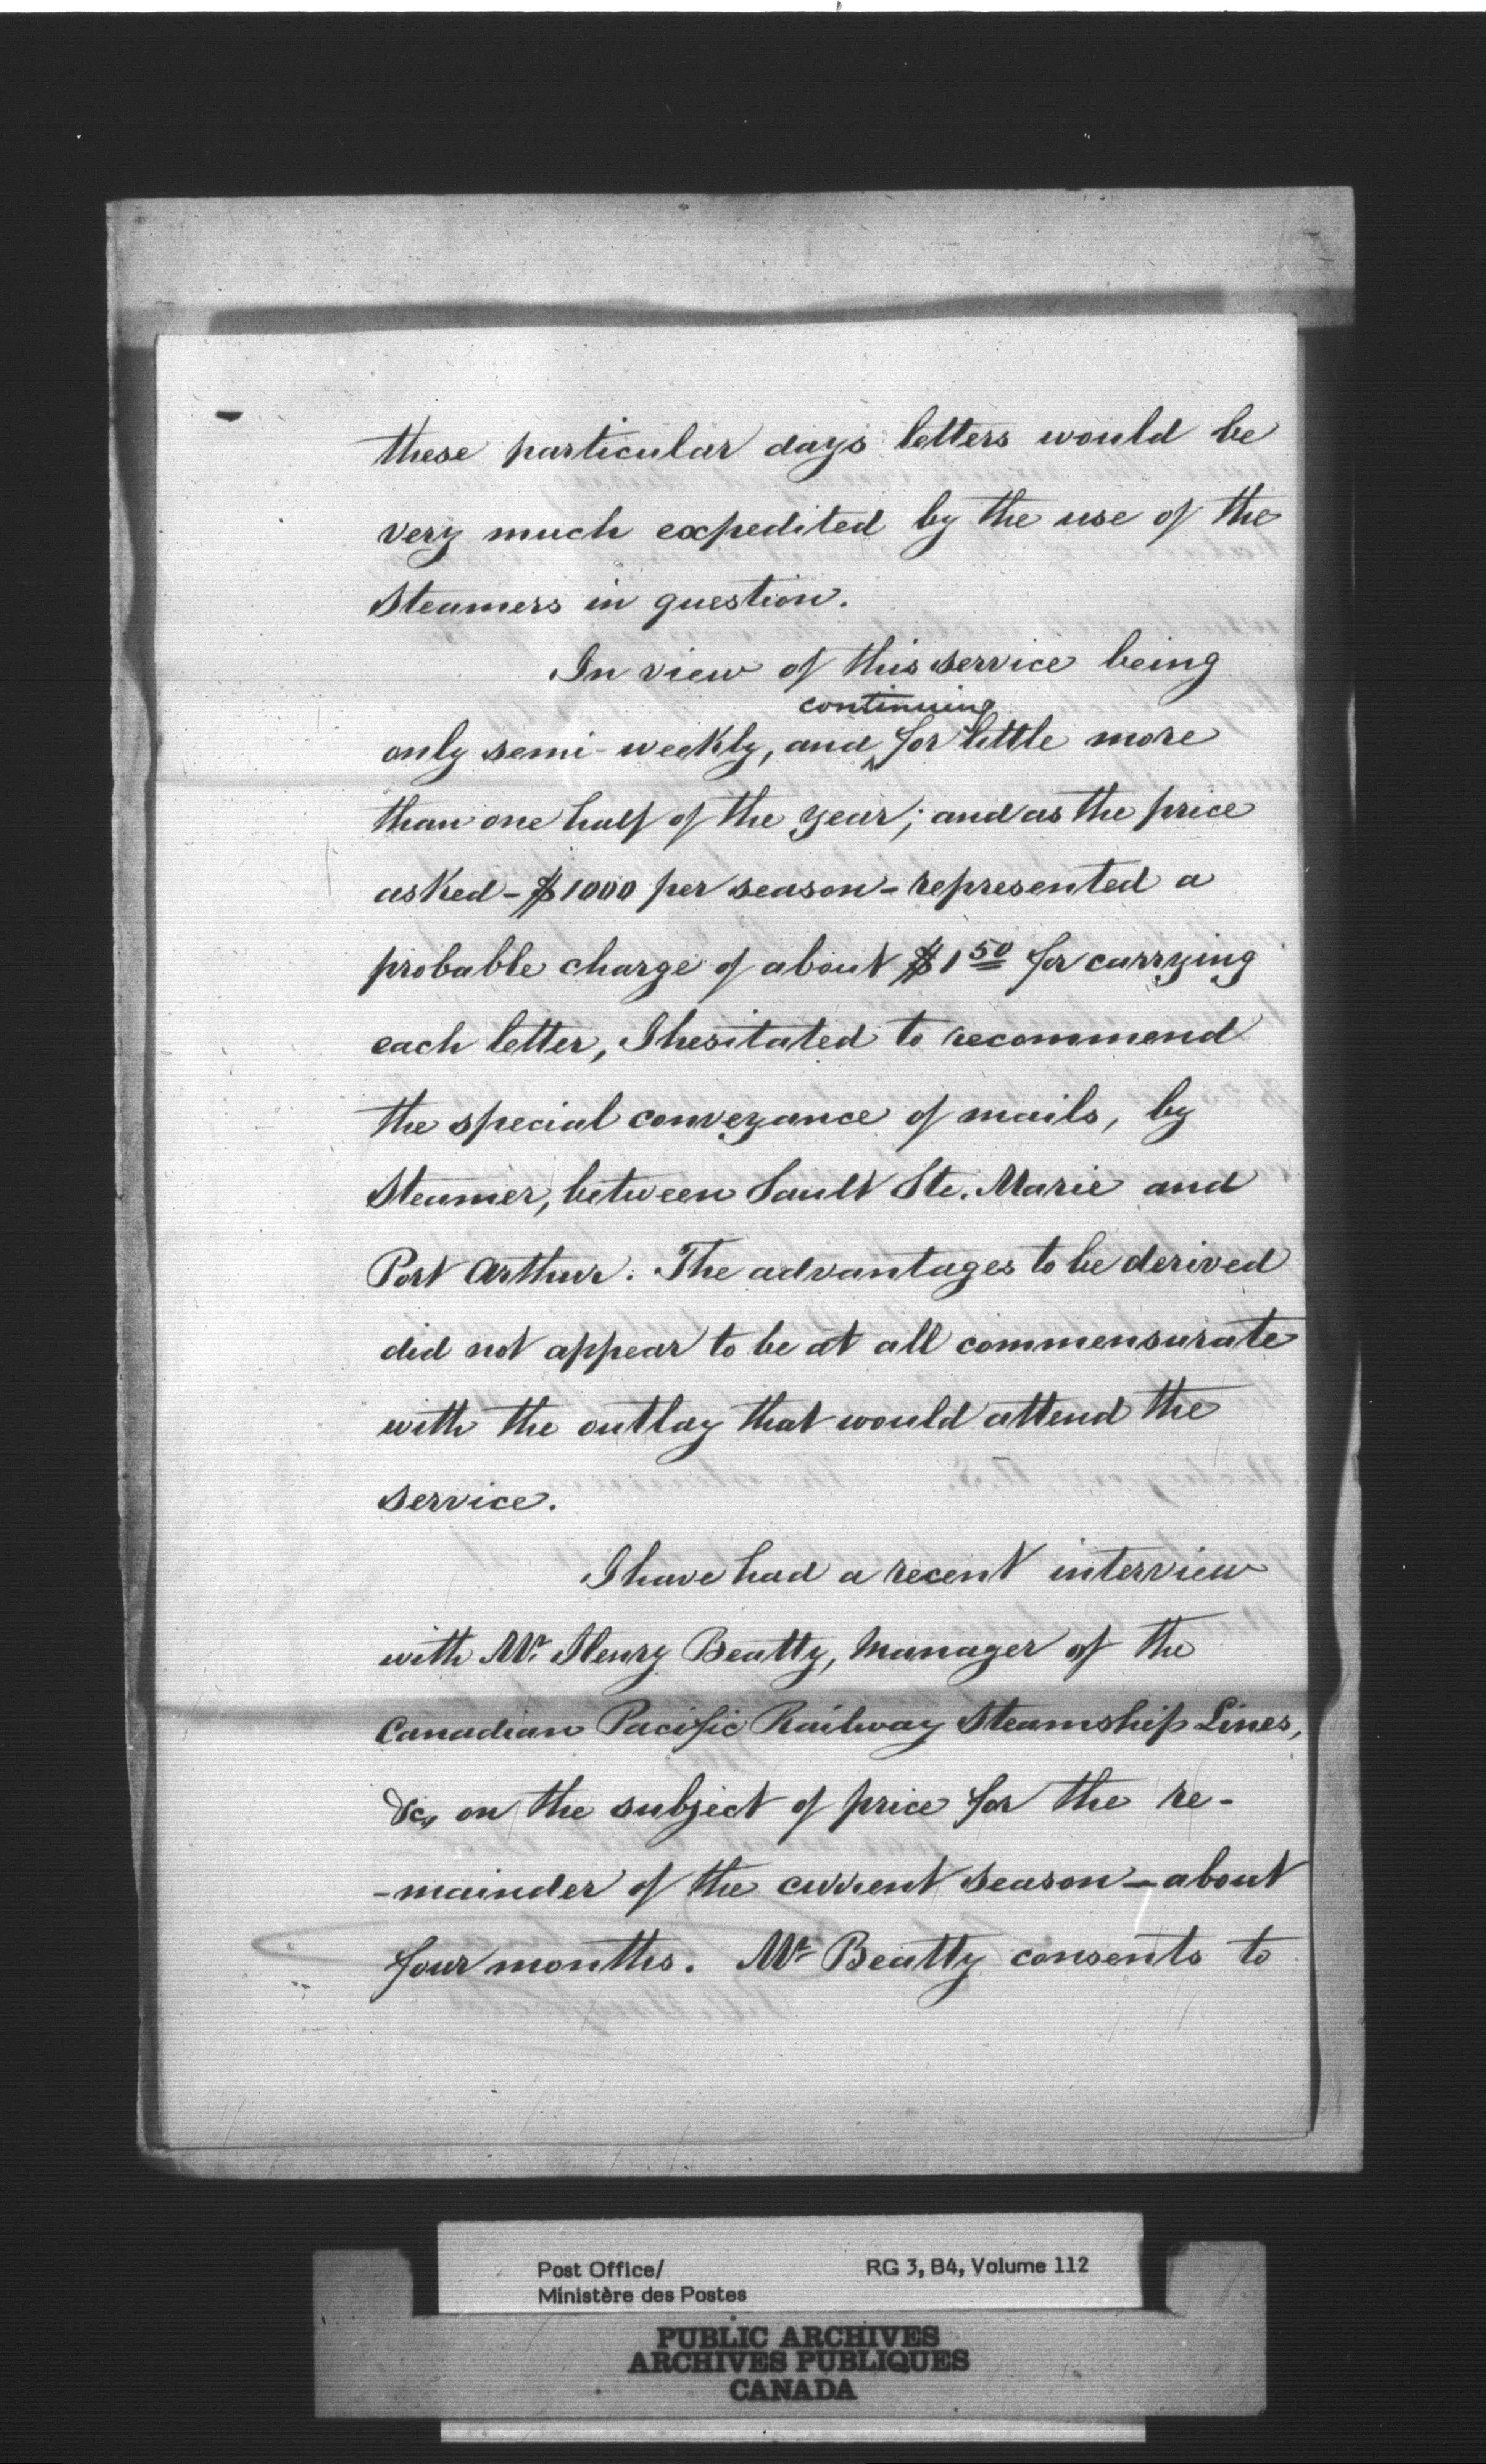 these particular days letters would be
very much expedited by the use of the
Steamers in question.
In view of this service being
continuing
only semi-weekly, and ^ for little more
than one half of the year; and as the price
asked - $1000 per season - represented a
probable charge of about $1 50 for carrying
each letter, I hesitated to recommend
the special conveyance of mails, by
Steamer, between Sault Ste. Marie and
Port Arthur. The advantages to be derived
did not appear to be at all commensurate
with the outlay that would attend the
service.
I have had a recent interview
with Mr. Henry Beatty, Manager of the
Canadian Pacific Railway Steamship Lines,
&c, on the subject of price for the re-
-mainder of the current season - about
four months. Mr Beatty consents to
Post Office/
Ministère des Postes
RG 3, B4, Volume 112
PUBLIC ARCHIVES
ARCHIVES PUBLIQUES
CANADA